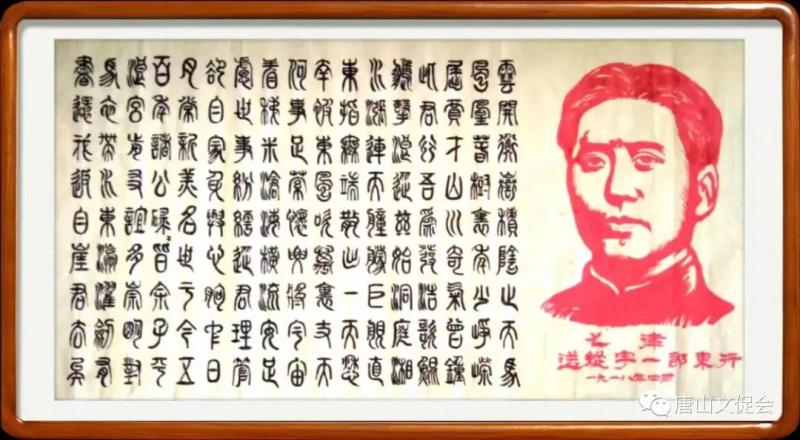 雲開衡嶽積陰止天馬
鳳凰春樹裏年少崢嶸
屈賈才山川奇氣曾鍾
此君行吾為發浩歌鯤
鵬擊浪從茲始洞庭湘
水漲連天艟艨巨艦直
東指無端散出一天愁
幸被東風吹萬里丈夫
何事足縈懷要將宇宙
看稊米滄海橫流安足
慮世事紛紜從君理管
卻自家身與心胸中日
月常新美名世于今五
百年諸公碌〻皆余子平
浪宮前友誼多崇明對
馬衣帶水東瀛濯劍有
書還我返自崖君去矣
七律
送縱宇一郎東行
一九一八年四月
唐山文促会